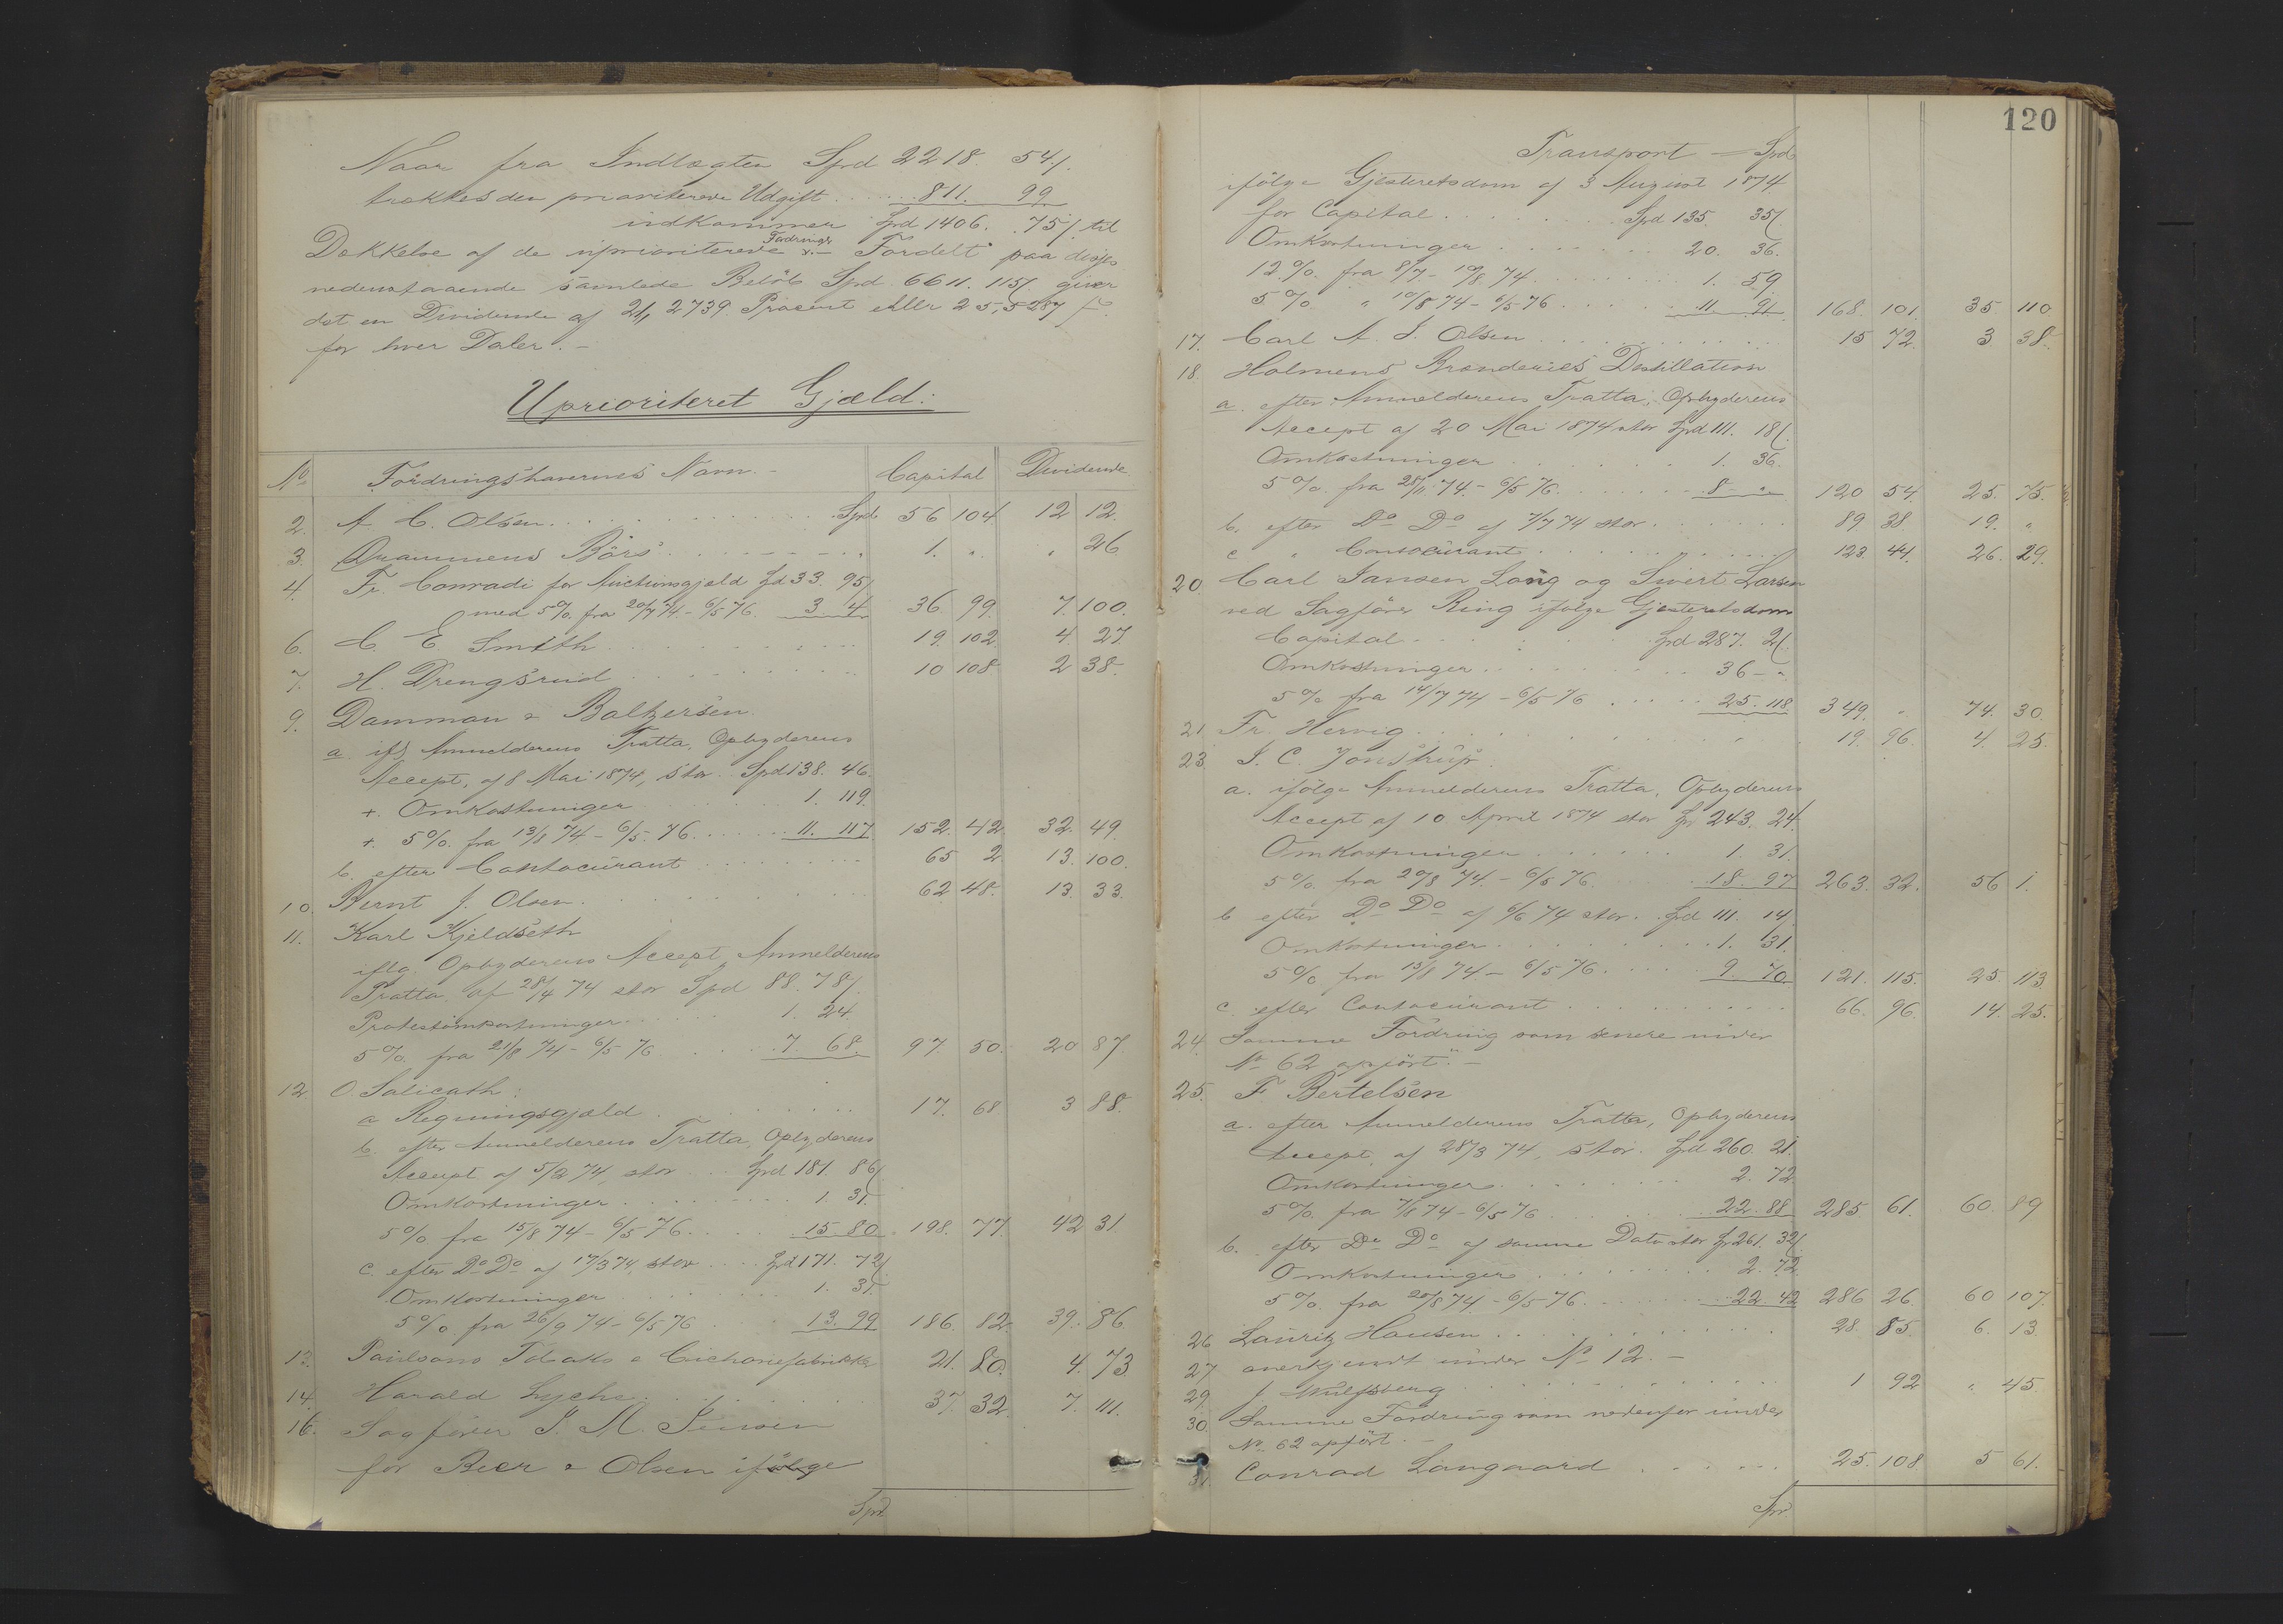 Naar fra Indtægten Spd 2218. 54/.
trækkes den prioriterede Udgift .... 811. 99
indkommer Spd 1406. 75/. til
Dækkelse af de uprioriterede Fordringer. Fordelt paa disses
nedenstaaende samlede Beløb Spd 6611. 115/. giver
det en Dividende af 21,2739 Procent eller 25,5287 /
for hver Daler. -
Uprioriteret Gjæld:
No Fordringshavernes Navn. - Capital Dividende
2. A. C. Olsen ..... Spd 56 104 12 12.
3. Drammens Börs ..... 1. " " 26
4. Fr. Conradi for Auctionsgjæld Spd 33. 95/.
med 5% fra 20/7 74 - 6/5 76. 3. 4. 36. 99. 7. 100.
6. C. E. Smith ..... 19. 102. 4. 27.
7. H. Drengsrud ..... 10 108 2 38.
9. Damman & Baltzersen.
a ifg Anmelderens Tratta, Opbyderens
Accept, af 8 Mai 1874, stor. Spd 138. 46.
+. Omkostninger 1. 119.
+. 5%. fra 13/8 74 - 6/5. 76 ..... 11. 117 152. 42. 32. 49.
b. efter Contocurant ..... 65 2 13. 100.
10. Bernt J. Olsen ..... 62 48. 13. 33.
11. Karl Kjeldseth
iflg. Opbyderens Accept, Anmelderens
Tratta af 28/4 74 stor Spd 88. 78/.
Protestomkostninger ..... 1. 24.
5%. fra 21/8 74 - 6/5 76 ..... 7. 68. 97. 50. 20 87.
12. O. Salicath:
a Regningsgjæld ..... 17. 68 3 88.
b. efter Anmelderens Tratta, Opbyderens
Accept af 5/2 74, stor ... Spd 181 86/
Omkostninger ..... 1. 31.
5% fra 15/8 74 - 6/5 76 ..... 15 80. 198. 77. 42 31.
c. efter Do Do af 17/3 74, stor .... Spd 171. 72/
Omkostninger ..... 1. 31.
5% fra 26/9 74 - 6/5 76 . 13. 99 186. 82. 39. 86
13. Paulsens Tobaks & Cichoriefabrikker 21. 80. 4. 73
14. Harald Lyche ..... 37. 32. 7. 111.
16. Sagfører J. M. Jensen
for Beer & Olsen ifølge
Spd
120
Transport - Spd
ifölge Gjesteretsdom af 3 August 1874
for Capital ..... Spd 135. 35/
Omkostninger ..... 20. 36.
12%. fra 8/7 - 10/8 74 ..... 1. 59.
5% " 10/8 74 - 6/5 76 ..... 11. 91. 168. 101. 35. 110
17. Carl A. J. Olsen ..... 15 72. 3 38.
18. Holmens Brænderies Destillation
a. efter Anmelderens Tratta, Opbyderens
Accept af 20 Mai 1874 stor Spd 111. 18/.
Omkostninger ..... 1. 36.
5%. fra 28/11 74. - 6/5 76 ..... 8 - " 120 54. 25. 75.
b. efter Do Do af 7/7 74 stor ..... 89 38 19. "
c " Contocurant ..... 123. 44. 26. 29.
20. Carl Jansen Long og Sivert Larsen
ved Sagfører Ring ifølge Gjesteretsdom
Capital ..... Spd 287. 2/.
Omkostninger ..... 36 - "
5% fra 14/7 74 - 6/5 76 ..... 25. 118 349. " 74. 30.
21. Fr. Hervig ..... 19. 96. 4. 25.
23. J. C. Jonstrup.
a. ifölge Anmelderens Tratta, Opbyderens
Accept af 10 April 1874 stor Spd 243. 24/.
Omkostninger ..... 1. 31.
5%. fra 20/8 74. - 6/5 76. 18. 97 263. 32. 56 1.
b efter Do Do af 6/6 74 stor. Spd 111. 14.
Omkostninger ..... 1. 31.
5% fra 15/8 74 - 6/5 76 ..... 9. 70. 121. 115. 25. 113
c. efter Contocurant ..... 66. 96. 14. 25.
24. Samme Fordring som senere under
No 62 opført. -
25. F. Bertelsen
a. efter Anmelderens Tratta, Opbyderens
Accept af 28/3 74, stor. Spd 260. 21.
Omkostninger ..... 2. 72.
5%. fra 7/8 74 - 6/5 76 ..... 22. 88 285. 61. 60. 89
b. efter Do Do af samme Dato stor Spd 261. 32/.
Omkostninger ..... 2. 72
5%. fra 20/8 74 - 6/5 76 ..... 22. 42 286 26. 60 107.
26 Lauritz Hansen ..... 28. 85. 6. 13.
27 anerkjendt under No 12. -
29. J. Wulfsberg ..... 1 92 " 45.
30. Samme Fordring som nedenfor under
No. 62 opført. -
31. Conrad Langaard ..... 25. 108. 5 61.
Spd